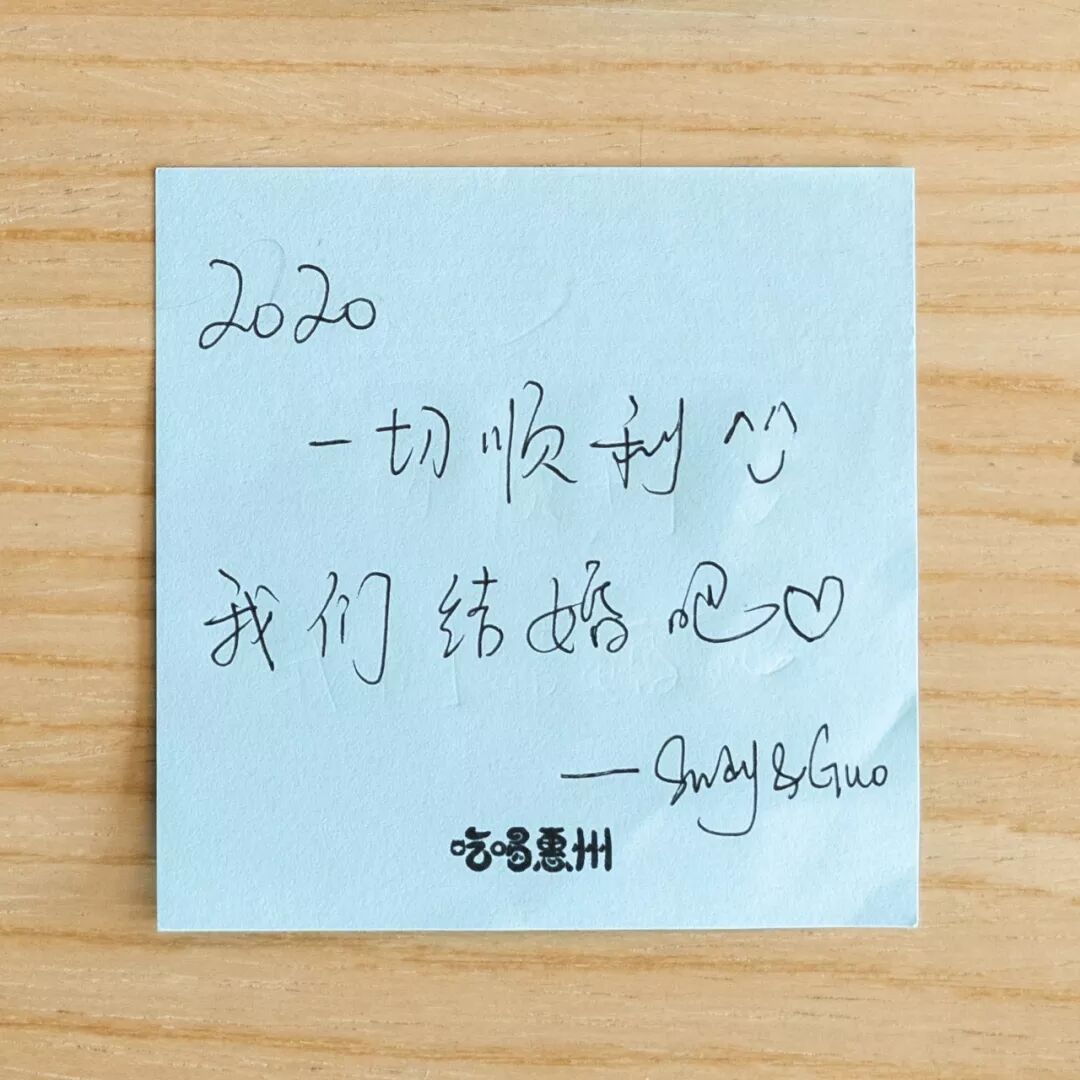 2020
一切顺利 ^_^
我们结婚吧♡
— Sway&Guo
吃喝惠州